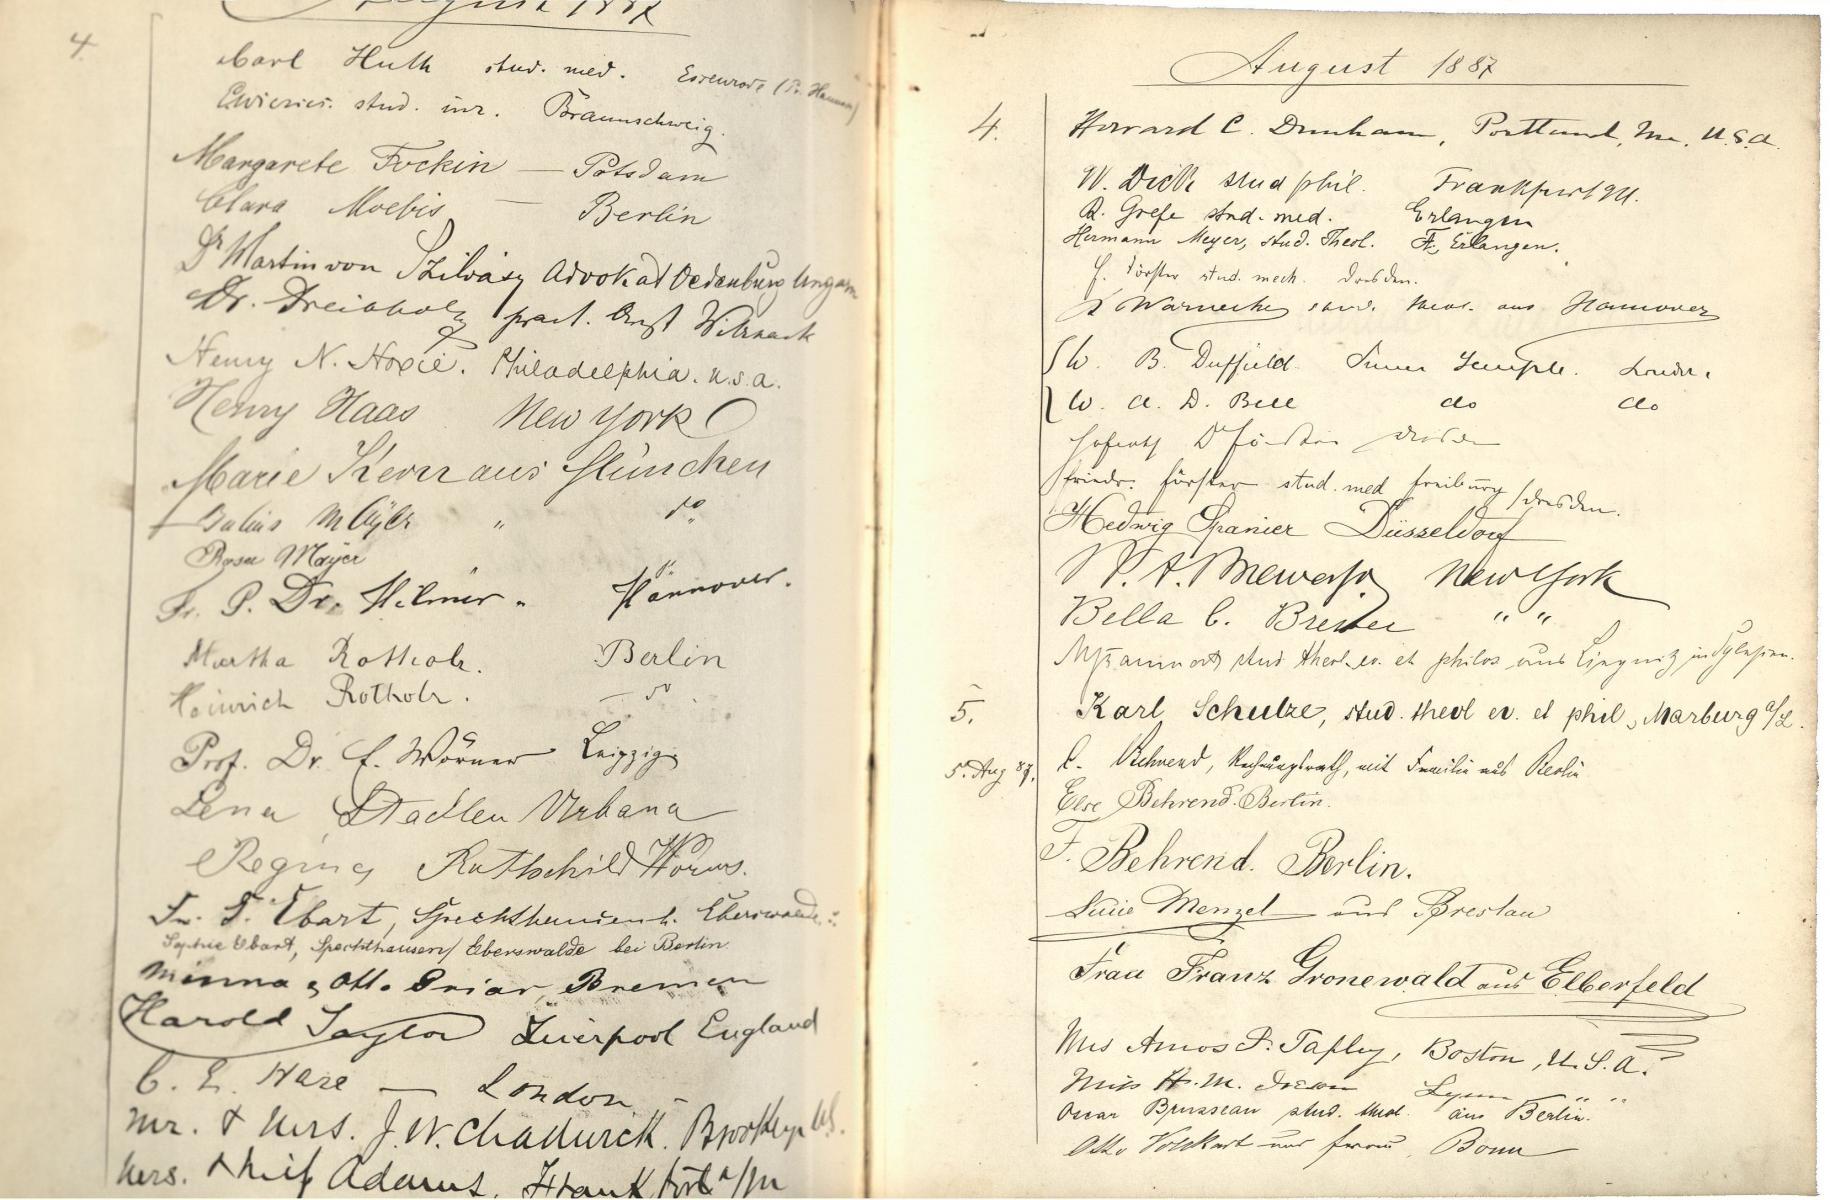 August 1887
4.
Carl Huth stud. med. Essenrode (Pr. Hannov)
stud. Braunschweig.
Margarete Fockin — Potsdam
Clara Moebis — Berlin
Dr Martin von Szilvásy Advokat Oedenburg Ungarn
Dr. Dreibholz pract. Arzt Wilsnack
Henry N. Hoxie. Philadelphia. U.S.A.
Henry Haas New York
Marie Kerrr aus München
Julius Mayer " do
Rosa Mayer "
Fr. P. Dr. Hilmer. Hannover.
Martha Rotholz. Berlin
Heinrich Rotholz. — do
Prof. Dr. E. Wörner Leipzig
Lena Stadler Urbana
Regina Rothschild Worms.
Fr. T. Ebart, Spechthausen b. Eberswalde.
Sophie Ebart, Spechthausen/Eberswalde bei Berlin
Minna & Otto Bremen
Harold Taylor Liverpool England
C. E. Hare — London
Mr. & Mrs. J. W. Chadwick. Brooklyn US.
Mrs. & Miss Adams. Frankfort a/M
August 1887
4. Howard C. Dunham, Portland, Me. U.S.A.
W. Dick stud phil. Frankfurt a/M.
R. Grefe stud. med. Erlangen
Hermann Meyer, stud. Theol. Erlangen.
E. Förster stud. mech. Dresden.
Warnecke stud. theol. aus Hannover
W. B. Duffield. Inner Temple. London
W. A. D. Bell do do
Hofrath Dr Förster Dresden
Friedr. Förster stud. med Freiburg / Dresden.
Hedwig Spanier Düsseldorf
New York
Bella C. Brewer " "
stud theol. ev. et philos aus Liegnitz in Schlesien.
5. Karl Schulze, stud. theol ev. et phil, Marburg a/L.
5. Aug 87. C. Behrend, Rechnungsrath, mit Familie aus Berlin
Else Behrend. Berlin.
F. Behrend. Berlin.
Lucie Menzel aus Breslau
Frau Franz Gronewald aus Elberfeld
Mrs Amos P. Tapley, Boston, U.S.A.
Miss H. M. Lynn " "
Oscar Brusseau stud. aus Berlin.
Otto Volkart und Frau, Bonn